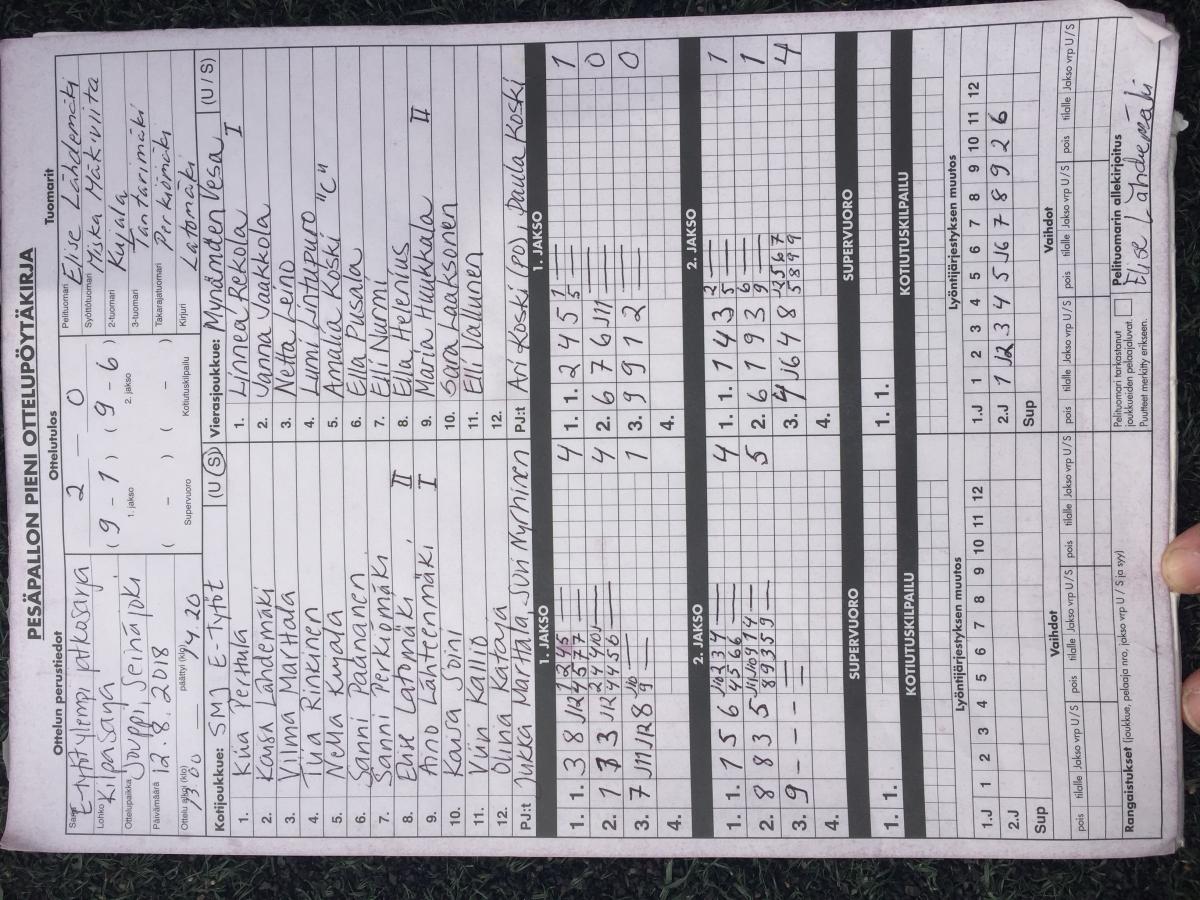 PESÄPALLON PIENI OTTELUPÖYTÄKIRJA
Ottelun perustiedot
Ottelutulos
Tuomarit
Sarja E-tytöt ylempi jatkosarja
Lohko Kilpasarja
Ottelupaikka Jouppi, Seinäjoki
Päivämäärä 12.8.2018
Ottelu alkoi (klo) 13.00 — päättyi (klo) 14.20
2 — 0
( 9 - 1 ) ( 9 - 6 )
1. jakso 2. jakso
( - ) ( - )
Supervuoro Kotiutuskilpailu
Pelituomari Elise Lähdemäki
Syöttötuomari Miska Mäkiviita
2-tuomari Kujala
3-tuomari Tantarimäki
Takarajatuomari Perkiömäki
Kirjuri Latomäki
Kotijoukkue: SMJ E-Tytöt (U / S)
1. Kiia Perttula
2. Kaisa Lähdemäki
3. Vilma Marttala
4. Tiia Rinkinen
5. Nella Kujala
6. Sanni Paananen
7. Sanni Perkiömäki
8. Elise Latomäki II
9. Aino Lähteenmäki I
10. Kaisa Soini
11. Viivi Kallio
12. Oliina Kataja
PJ:t Jukka Marttala, Suvi Nyrhinen
Vierasjoukkue: Mynämäen Vesa (U / S)
1. Linnea Rekola I
2. Janna Jaakkola
3. Netta Leino
4. Lumi Lintupuro
5. Amalia Koski "C"
6. Ella Pusala
7. Elli Nurmi
8. Ella Helenius
9. Maria Huukkala II
10. Saara Laaksonen
11. Elli Vallunen
12.
PJ:t Ari Koski (PO), Paula Koski
1. JAKSO
1. 1. 3 8 J12 4
2. 1 3 J12 4
3. 7 J11 J12 8 1
4.
1. JAKSO
1. 1. 2 4 5 1
2. 6 7 6 J11 0
3. 9 9 1 2 0
4.
2. JAKSO
1. 1. 1 5 6 4
2. 8 8 3 5 5
3. 9 - - -
4.
2. JAKSO
1. 1. 1 4 3 1
2. 6 1 9 3 1
3. 4 J16 4 8 4
4.
SUPERVUORO
1. 1.
SUPERVUORO
1. 1.
KOTIUTUSKILPAILU
KOTIUTUSKILPAILU
Lyöntijärjestyksen muutos
1.J 1 2 3 4 5 6 7 8 9 10 11 12
2.J
Sup
Lyöntijärjestyksen muutos
1.J 1 2 3 4 5 6 7 8 9 10 11 12
2.J 1 J12 3 4 5 J16 7 8 9 2 6
Sup
Vaihdot
pois tilalle Jakso vrp U/S pois tilalle Jakso vrp U/S pois tilalle Jakso vrp U/S
Vaihdot
pois tilalle Jakso vrp U/S pois tilalle Jakso vrp U/S pois tilalle Jakso vrp U/S
Rangaistukset (joukkue, pelaaja nro, jakso vrp U / S ja syy)
Pelituomari tarkastanut
joukkueiden pelaajaluvat.
Puutteet merkitty erikseen.
Pelituomarin allekirjoitus
Elise Lähdemäki